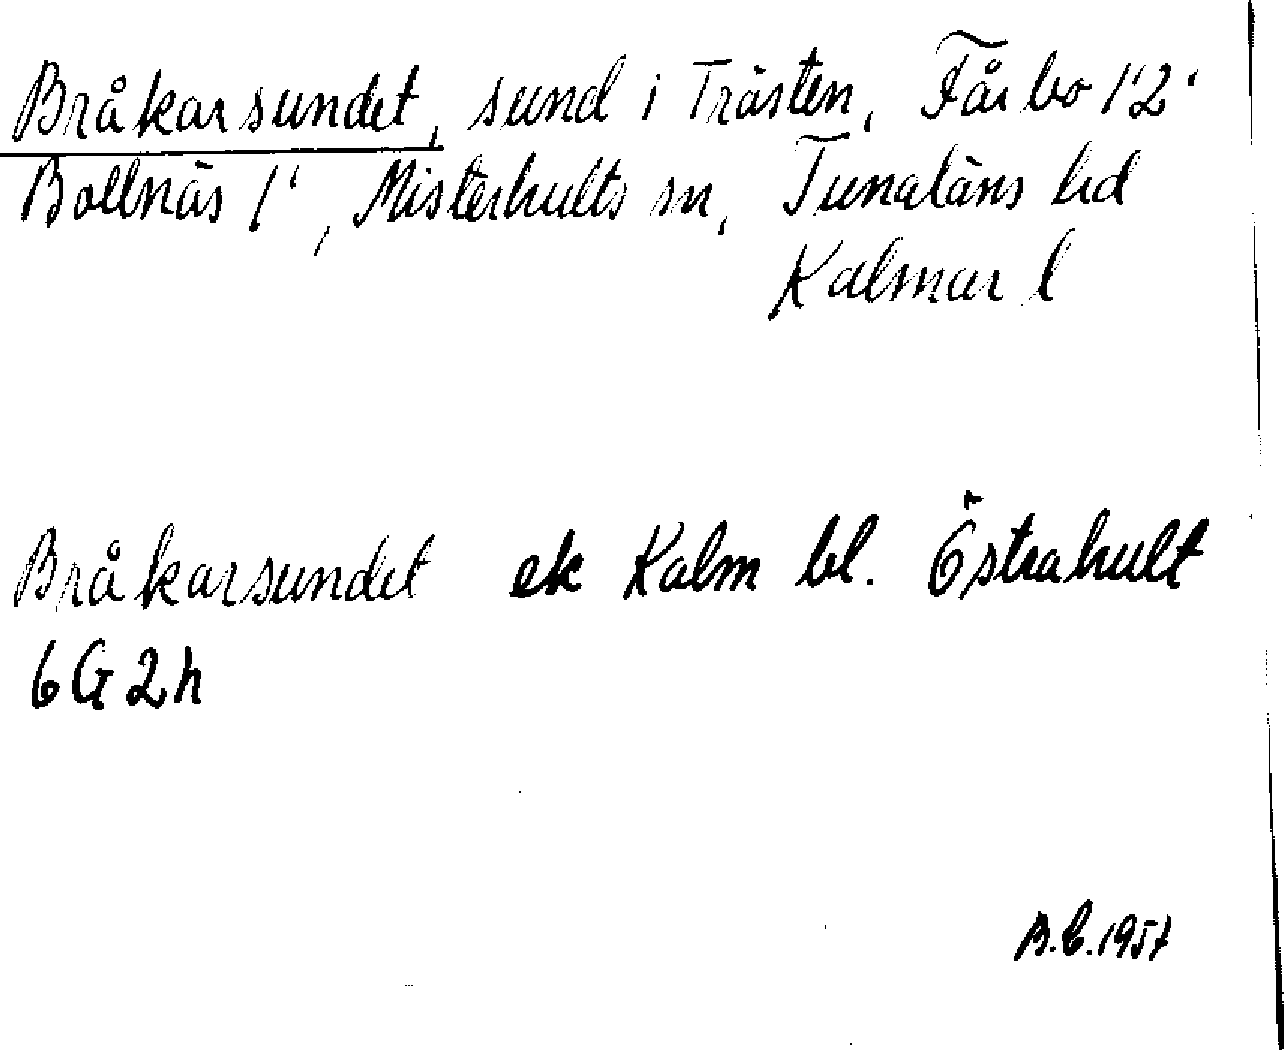 Bråkarsundet, sund i Trästen, Fårbo 1'2'
Bollnäs 1', Misterhults sn, Tunaläns hd
Kalmar l
Bråkarsundet ek Kalm bl. Östrahult
6G2h
B.C.1957